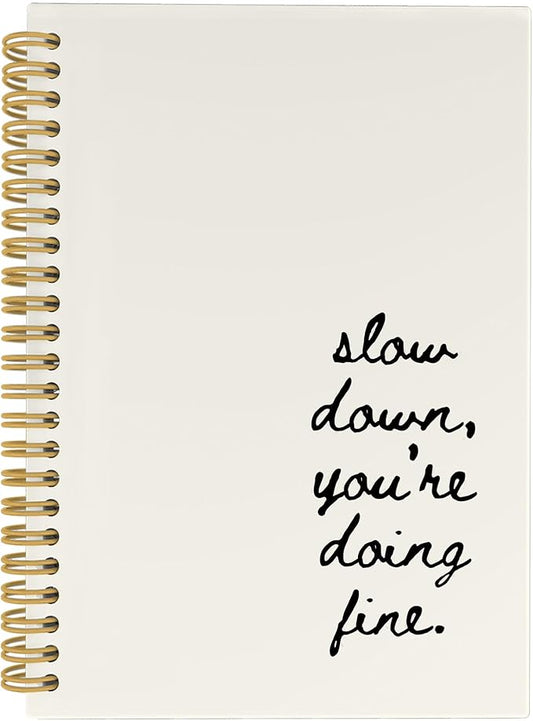 slow
down,
you're
doing
fine.